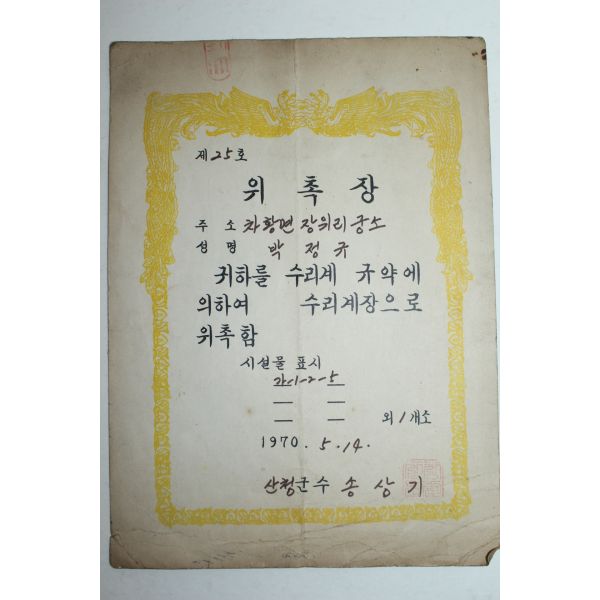 제25호
위촉장
주소 차황면 장위리 궁소
성명 박정규
귀하를 수리계 규약에
의하여 수리계장으로
위촉함
시설물 표시
가-1-2-5
외 1개소
1970. 5. 14.
산청군수 송상기